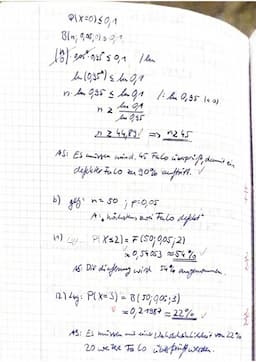 P(X=0) ≤ 0,1
B(n; 0,05; 0) ≤ 0,1
(n 0) · 0,05⁰ · 0,95ⁿ ≤ 0,1 /ln
ln(0,95ⁿ) ≤ ln 0,1
n · ln 0,95 ≤ ln 0,1 /: ln 0,95 (<0)
n ≥ ln 0,1 / ln 0,95
n ≥ 44,89 ⇒ n ≥ 45
AS: Es müssen mind. 45 überprüft, damit ein
defekter zu 90% auftritt.
b) geg: n = 50 ; p = 0,05
A: höchstens zwei defekt
P(X≤2) = F(50; 0,05; 2)
≈ 0,54053 ≈ 54%
AS: Die wird 54% angenommen.
P(X=3) = B(50; 0,05; 3)
≈ 0,21987 ≈ 22%
AS: Es müssen mit einer Wahrscheinlichkeit von 22%
20 weitere überprüft werden.